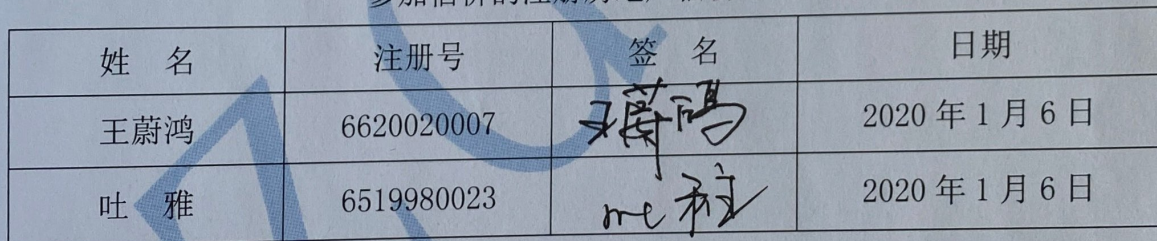 参加估价的注册房地产估价师
姓 名 注册号 签 名 日期
王蔚鸿 6620020007 王蔚鸿 2020年1月6日
吐 雅 6519980023 吐雅 2020年1月6日